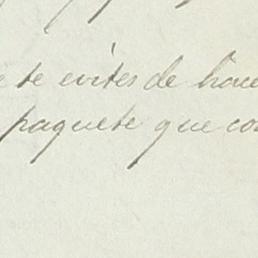 te evites de
paquete que